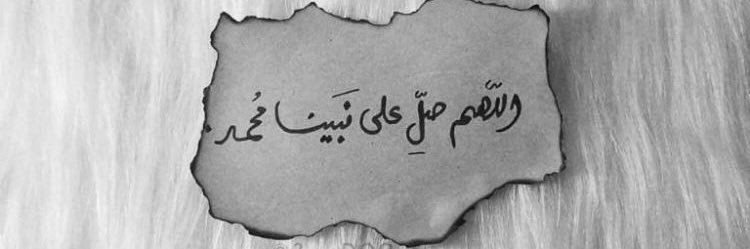 اللهم صلِّ على نَبينا مُحمد